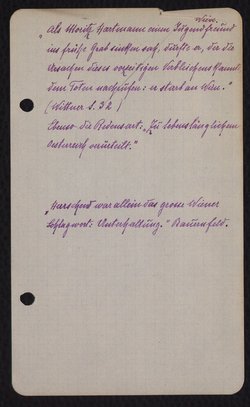 Wien.
"Als Moritz Hartmann einen Jugendfreund
ins frühe Grab sinken sah, durfte er, der die
Ursachen dieses vorzeitigen Verbleichens kannte,
dem Toten nachrufen: er starb an Wien."
(Wittner S. 32)
Ebenso die Redensart: "Zu lebenslänglichem
Österreich verurteilt."
"Herrschend war allein das grosse Wiener
Schlagwort: Unterhaltung." Bauernfeld.